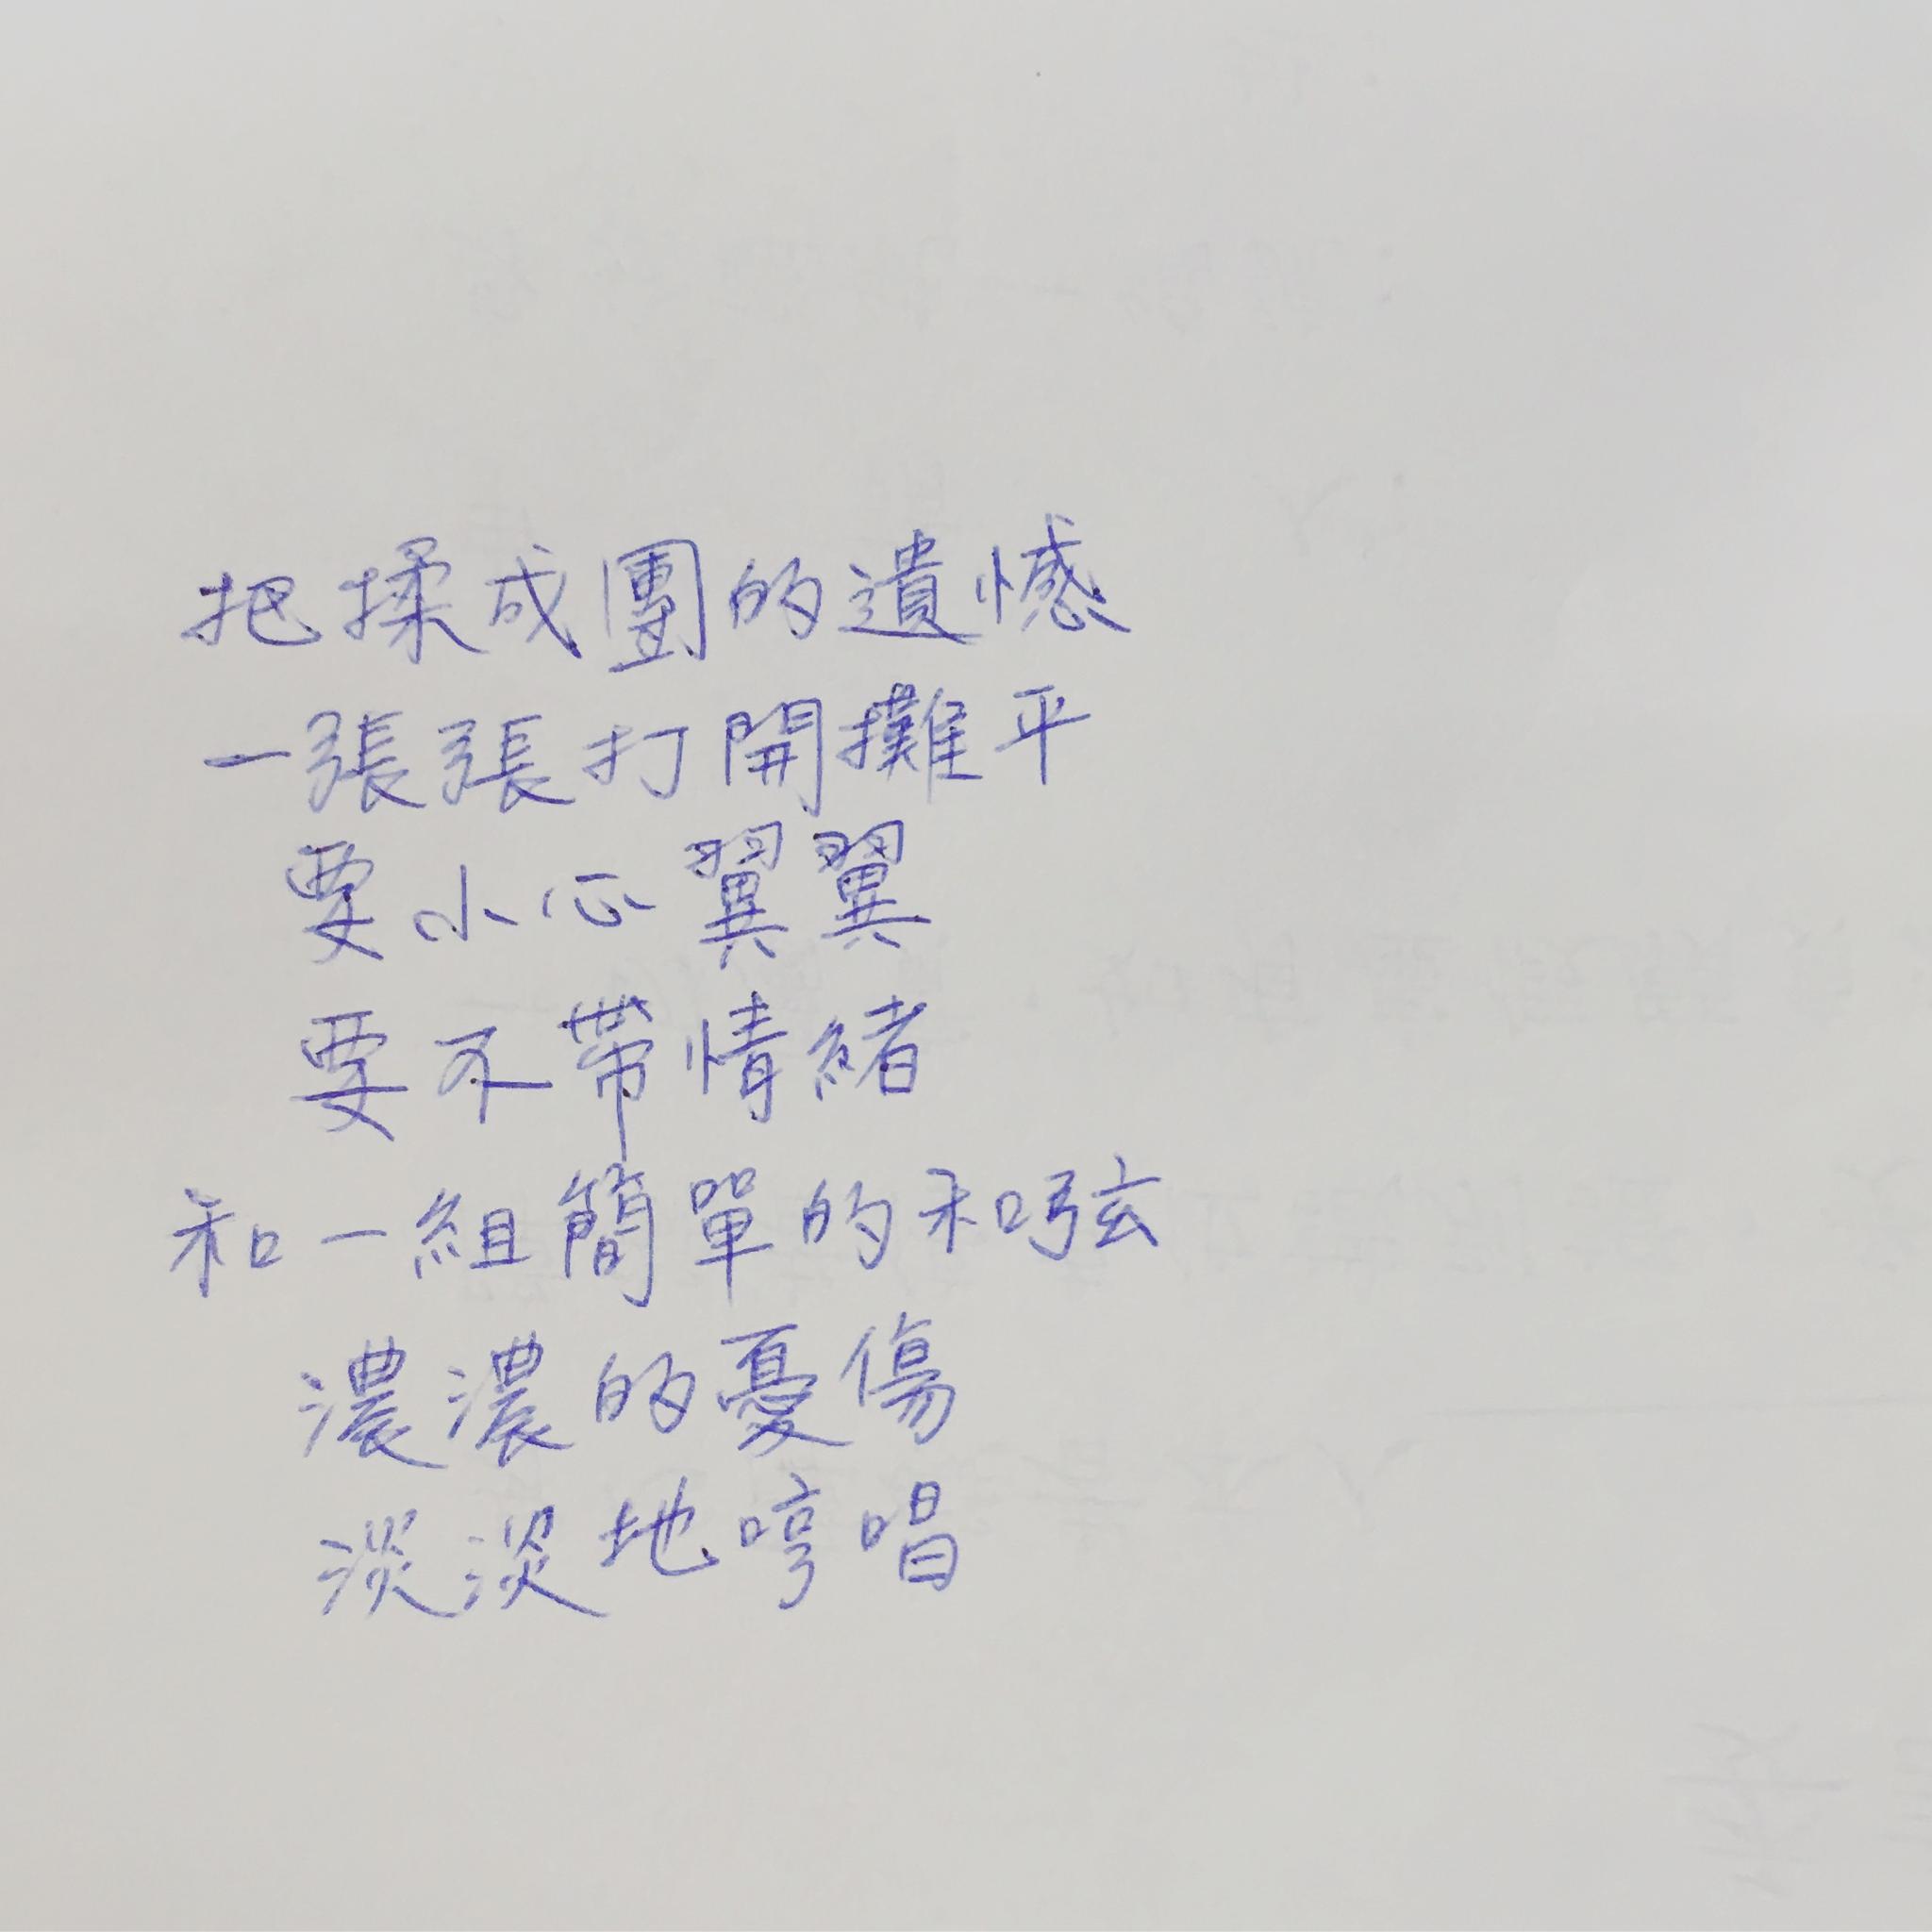 把揉成團的遺憾
一張張打開攤平
要小心翼翼
要不帶情緒
和一組簡單的和弦
濃濃的憂傷
淡淡地哼唱